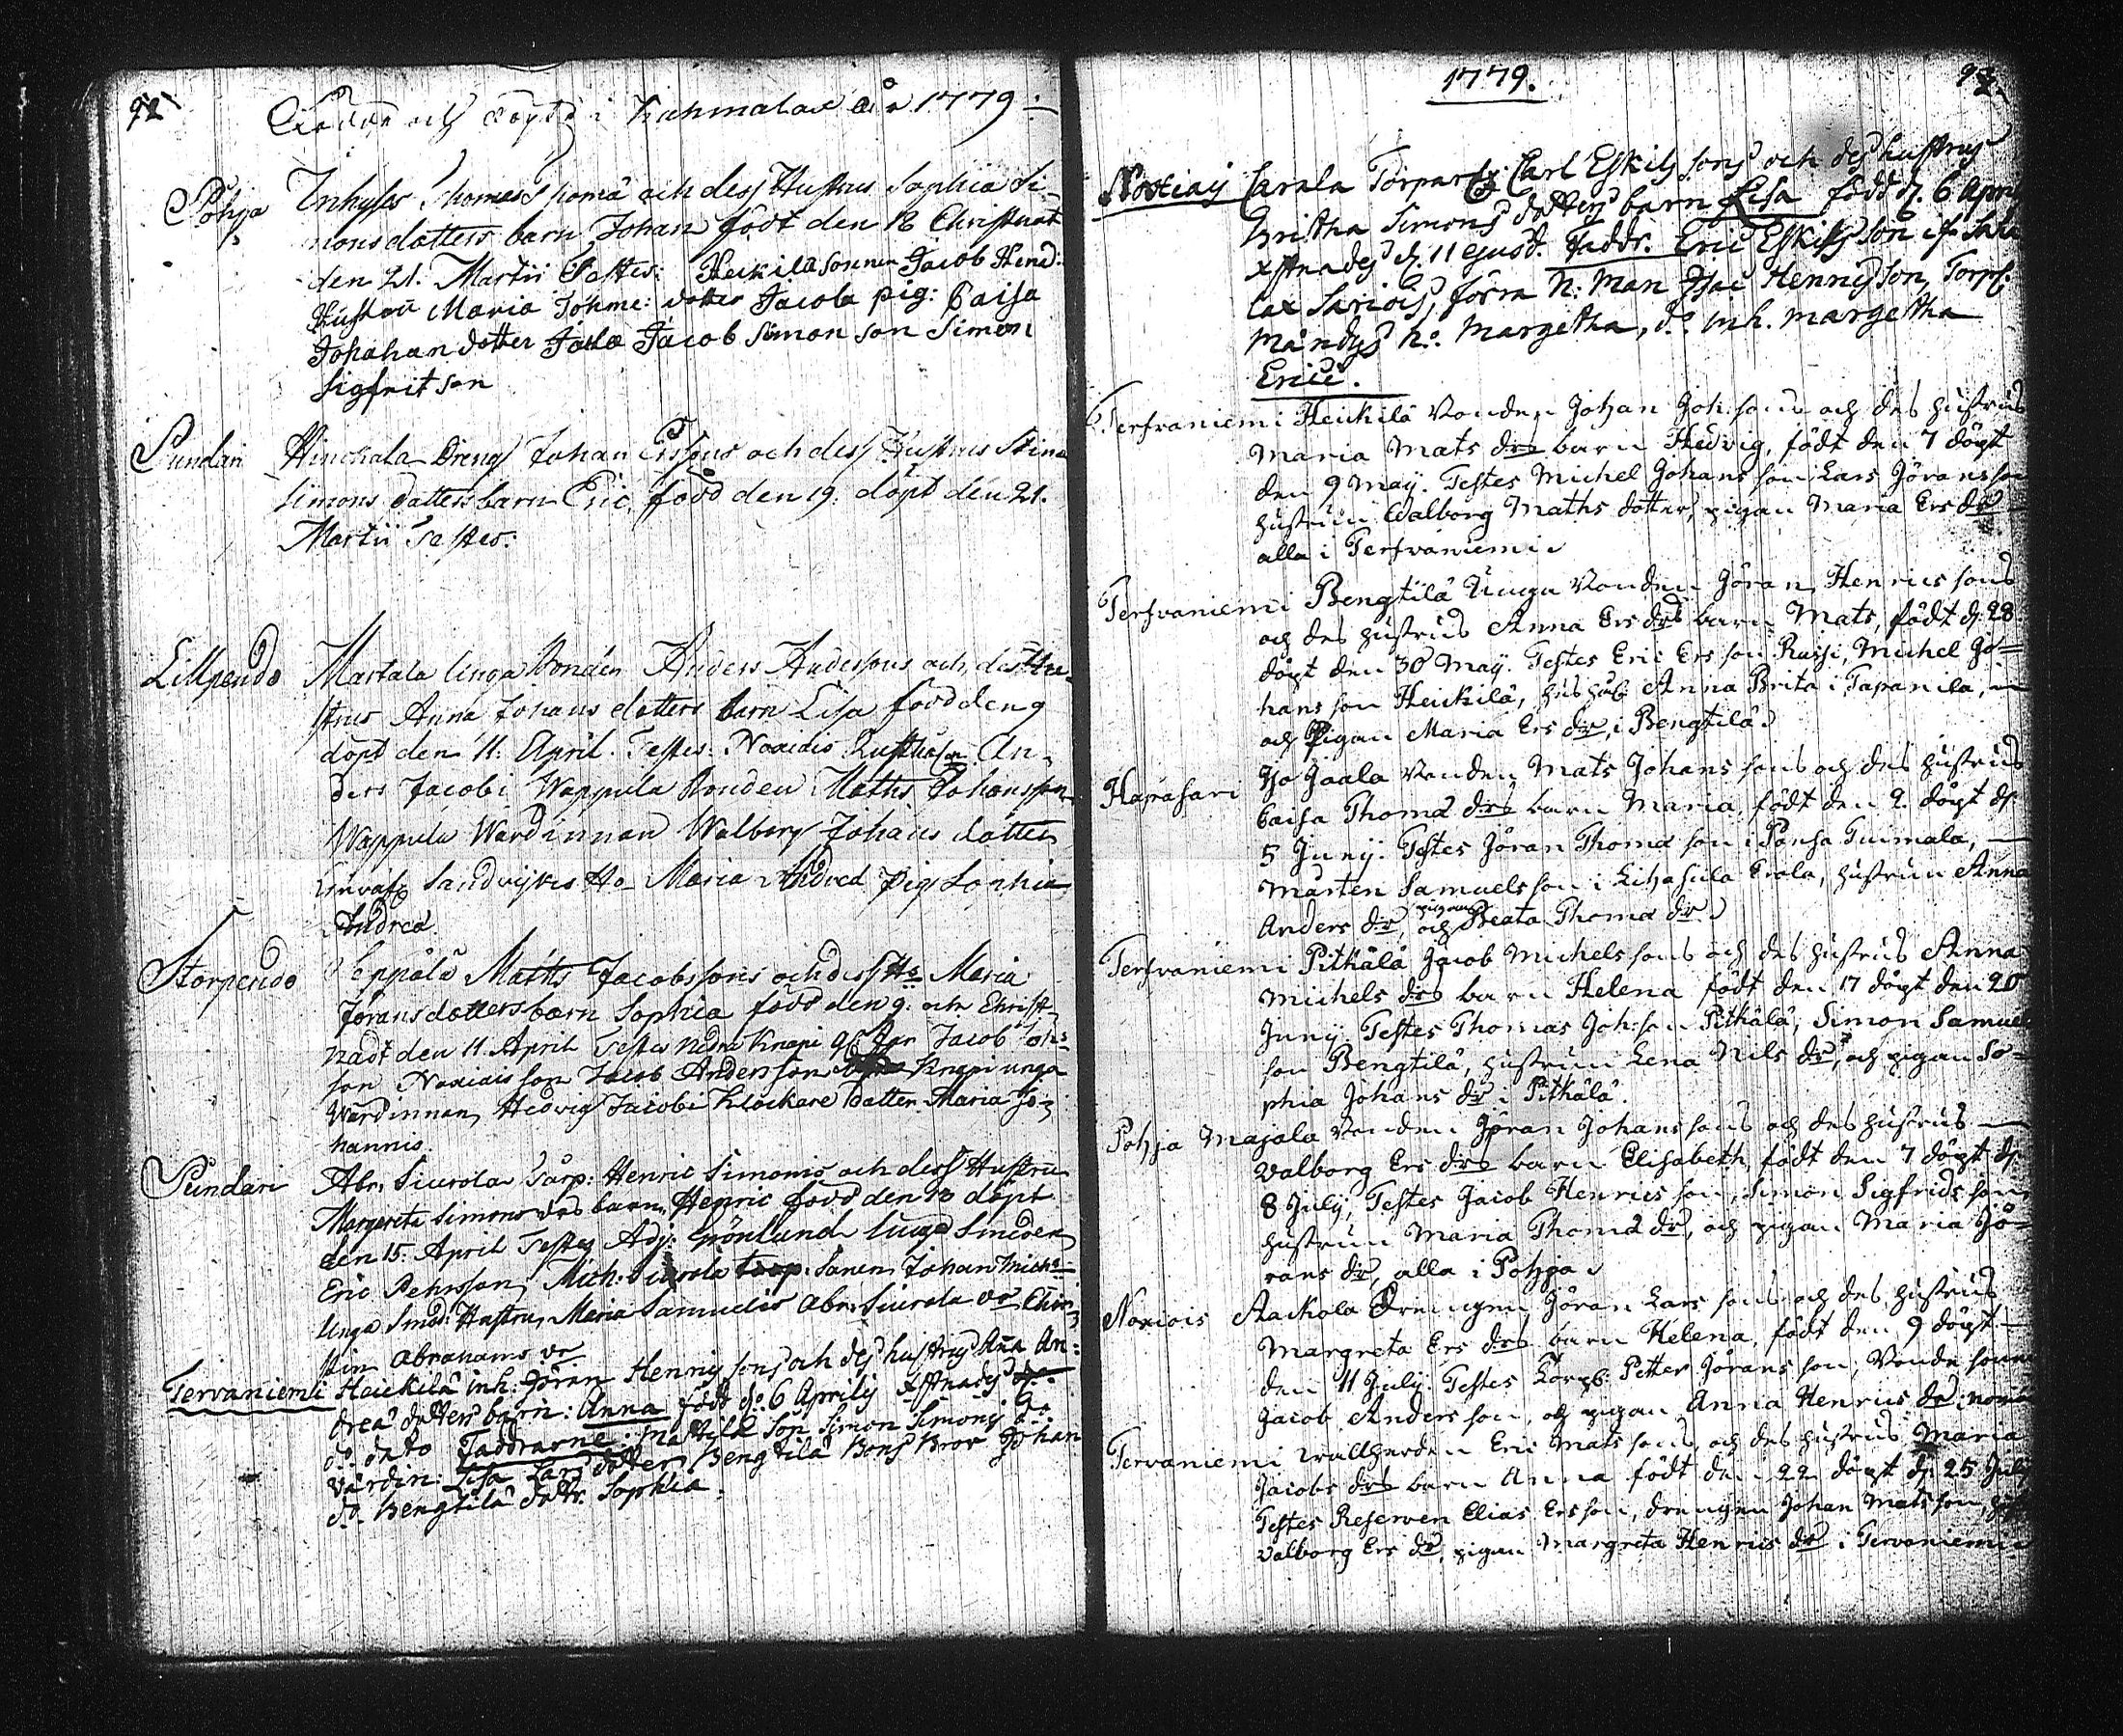 92
Födde och Döpte i Kuhmalax år 1779.
Pohja Inhyses Thomas Thomæ och dess Hustrus Sophia Si-
monsdotters barn Johan född den 18 Christnat
den 21. Martii Testes: Heickilä sonnen Jacob Hend:
Hustrun Maria Tohme: dotter Jacola pig: Caisa
Johahan dotter Jacob Simon son Simon
Sigfrit son
Sundari Hinckala Dreng Johan Erssons och dess Hustrus Stina
Simons dotters barn Eric född den 19. döpt den 21.
Martii Testes:
Lillpendo Martala Unga Bonden Anders Anderssons och dess Hu-
strus Anna Johans dotters barn Lisa född den 9
döpt den 11. April. Testes: Noxiais An-
ders Jacobi Wappula Bonden Maths Johansson
Wappula Wärdinnan Walborg Johans dotter
Sandvijkes Ho Maria Andreæ Pig: Sophia
Andreæ.
Storpendo Seppälä Matts Jacobssons och dess Ho Maria
Jöransdotters barn Sophia född den 9: och Christ-
nadt den 11 April Testes Nedra Knapi Jacob Joh:
son Noxiais son Jacob Andersson Knapi unga
Wärdinnan Hedvig Jacobi Klockare Dotter Maria Jo-
hannis.
Sundari Abr. Siurola Tårp: Henric Simonis och dess Hustru
Margereta Simons drs barn Henric född den 13 döpt
den 15. April Testes Adj: Grönlund Unga Smeden
Eric Pehrsson, Mich: Siurola Torp: Sonen Johan Mich:
Unga Smed: Hustru Maria Samuelis Abr: Siurola dr Chir-
stin Abrahams dr
Tervaniemi Heickilä inh: Jöran Henrigsons och des hustrus Aña An-
dreæ dotters barn: Anna född d: 6 Aprilis xstnades
d: dito Faddrarne: Mattila Son Simon Simonis
Värdin: Lisa Lars dotter Bengtilä Bons Bror Johan
d:o Bengtilä dottr. Sophia.
1779.
Noxiais Carala Torpar Carl Eskils sons och des hustrus
Britha Simons dotters barn Lisa född d. 6 April
xstnades d. 11 ejusd. Faddr. Eric Eskils son
lax Sariois, förra N: Man Isac Henrigson, Torp:
Måndus h:o Margetha, d:o inh. Margetha
Ericii.
Terfvaniemi Heickilä Bonden Johan Joh:sons och des hustrus
Maria Mats drs barn Hedvig, födt den 7 döpt
den 9 Maij. Testes Michel Johans son, Lars Jöransson
hustrun Walborg Maths dotter, pigan Maria Ers dr
alla i Terfvaniemi
Terfvaniemi Bengtilä Unga Bonden Jöran Henrics sons
och des hustrus Anna Ers drs barn Mats, födt d. 28
döpt den 30 Maij. Testes Eric Ers son Russi, Michel Jo-
hans son Heickilä, Anna Brita i Tapanila,
och Pigan Maria Ers dr, i Bengtilä
Hapasari Jo Jaala Bonden Mats Johans sons och des hustrus
Caisa Thomæ drs barn Maria, födt den 2. döpt d:
5 Junij. Testes Jöran Thomæ son i Ponsa Tuimala,
Mårten Samuelsson i Lihasula Erola, hustrun Anna
Anders dr, och pigan Beata Thomæ dr
Terfvaniemi Pitkälä Jacob Michels sons och des hustrus Anna
Michels drs barn Helena födt den 17 döpt den 20
Junij. Testes Thomas Joh:son Pitkälä, Simon Samuel
son Bengtilä, hustrun Lena Nils dr, och pigan So-
phia Johans dr i Pitkälä.
Pohja Majala Bonden Jöran Johans sons och des hustrus
Valborg Ers drs barn Elisabeth födt den 7 döpt d:
8 Julij, Testes Jacob Henrics son, Simon Sigfrids son,
hustrun Maria Thomæ dr, och pigan Maria Jö-
rans dr, alla i Pohja
Noxiois Aackola Drengen Jöran Lars sons och des hustrus
Margreta Ers drs barn Helena, födt den 9 döpt
den 11 Julij. Testes Torp: Petter Jörans son, Bonde sonen
Jacob Anders son, och pigan Anna Henrics dr
Tervaniemi Wallherden Eric Mats sons, och des hustrus Maria
Jacobs drs barn Anna födt den 22 döpt d: 25 Julij
Testes Reserven Elias Ersson, drengen Johan Matsson,
Valborg Ers dr, pigan Margreta Henrics dr i Tervaniemi